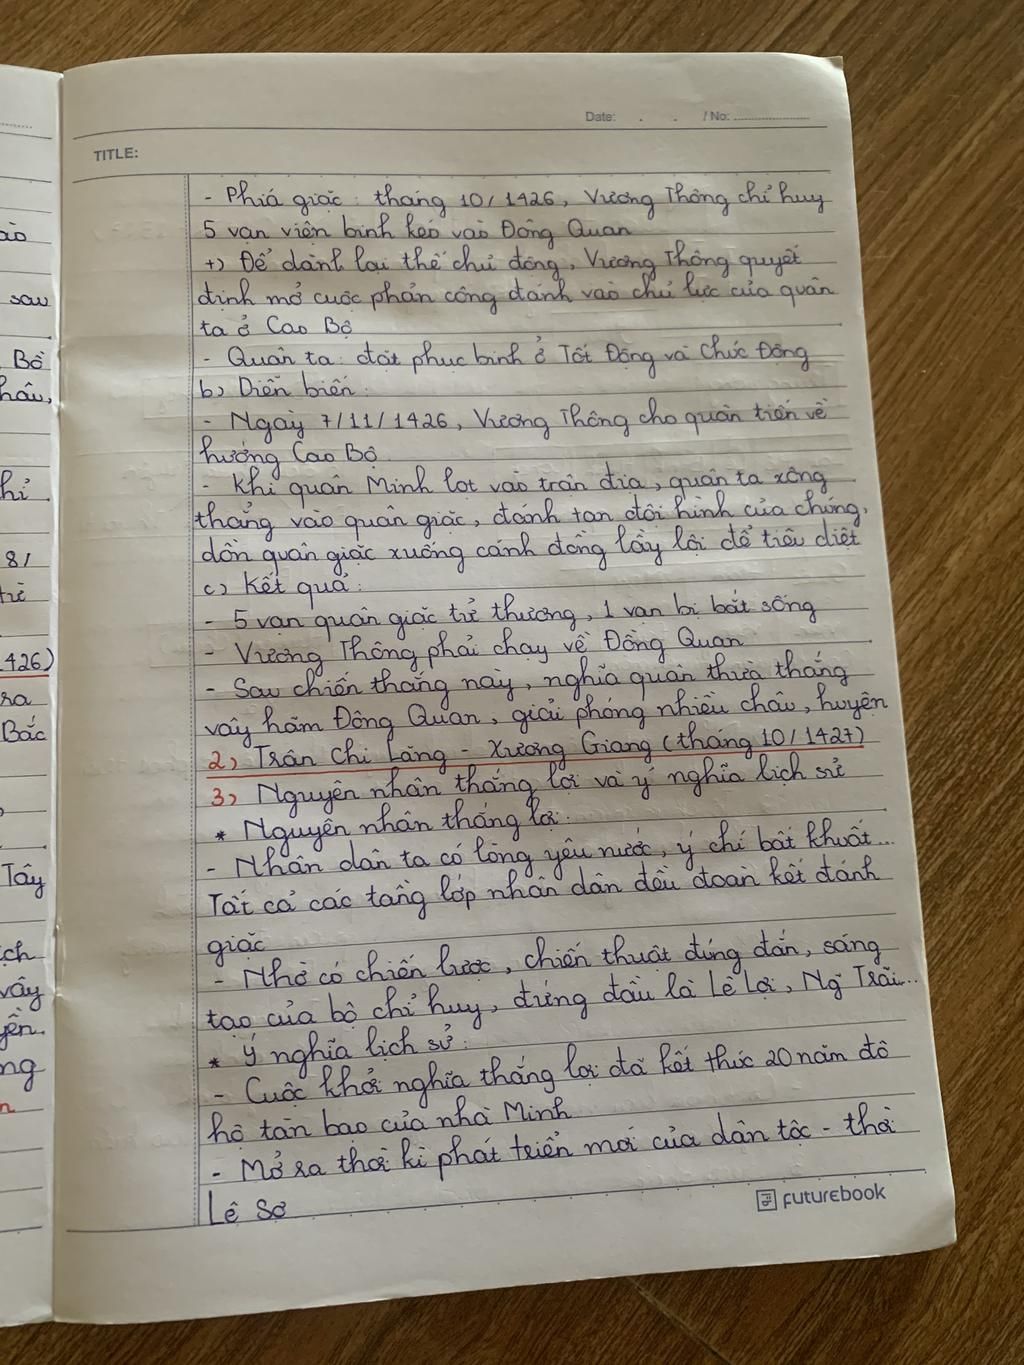 Date: . . / No:
TITLE:
- Phía giặc: tháng 10/1426, Vương Thông chỉ huy
5 vạn viện binh kéo vào Đông Quan
+) Để dành lại thế chủ động, Vương Thông quyết
định mở cuộc phản công đánh vào chủ lực của quân
ta ở Cao Bộ
- Quân ta: đặt phục binh ở Tốt Động và Chúc Động
b) Diễn biến:
- Ngày 7/11/1426, Vương Thông cho quân tiến về
hướng Cao Bộ
- Khi quân Minh lọt vào trận địa, quân ta xông
thẳng vào quân giặc, đánh tan đội hình của chúng,
dồn quân giặc xuống cánh đồng lầy lội để tiêu diệt
c) Kết quả:
- 5 vạn quân giặc tử thương, 1 vạn bị bắt sống
- Vương Thông phải chạy về Đông Quan
- Sau chiến thắng này, nghĩa quân thừa thắng
vây hãm Đông Quan, giải phóng nhiều châu, huyện
2) Trận Chi Lăng - Xương Giang (tháng 10/1427)
3) Nguyên nhân thắng lợi và ý nghĩa lịch sử
* Nguyên nhân thắng lợi:
- Nhân dân ta có lòng yêu nước, ý chí bất khuất...
Tất cả các tầng lớp nhân dân đều đoàn kết đánh
giặc
- Nhờ có chiến lược, chiến thuật đúng đắn, sáng
tạo của bộ chỉ huy, đứng đầu là Lê Lợi, Ng~ Trãi...
* Ý nghĩa lịch sử:
- Cuộc khởi nghĩa thắng lợi đã kết thúc 20 năm đô
hộ tàn bạo của nhà Minh
- Mở ra thời kì phát triển mới của dân tộc - thời
Lê Sơ
FUTUREBOOK
ào
sau
Bồ
hâu,
hỉ
8/
trừ
1426)
ra
Bắc
Tây
ịch
vây
yền.
ng
n